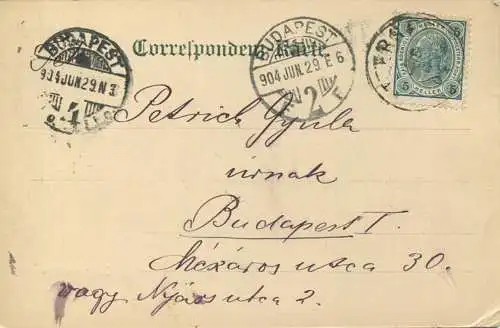 Correspondenz-Karte
BUDAPEST
904 JUN. 29. N 3
4
BUDAPEST
904 JUN. 29. E 6
2
5 5
HELLER
Petrich Gyula
úrnak
Budapest I.
Mészáros utca 30.
vagy Nyárs utca 2.